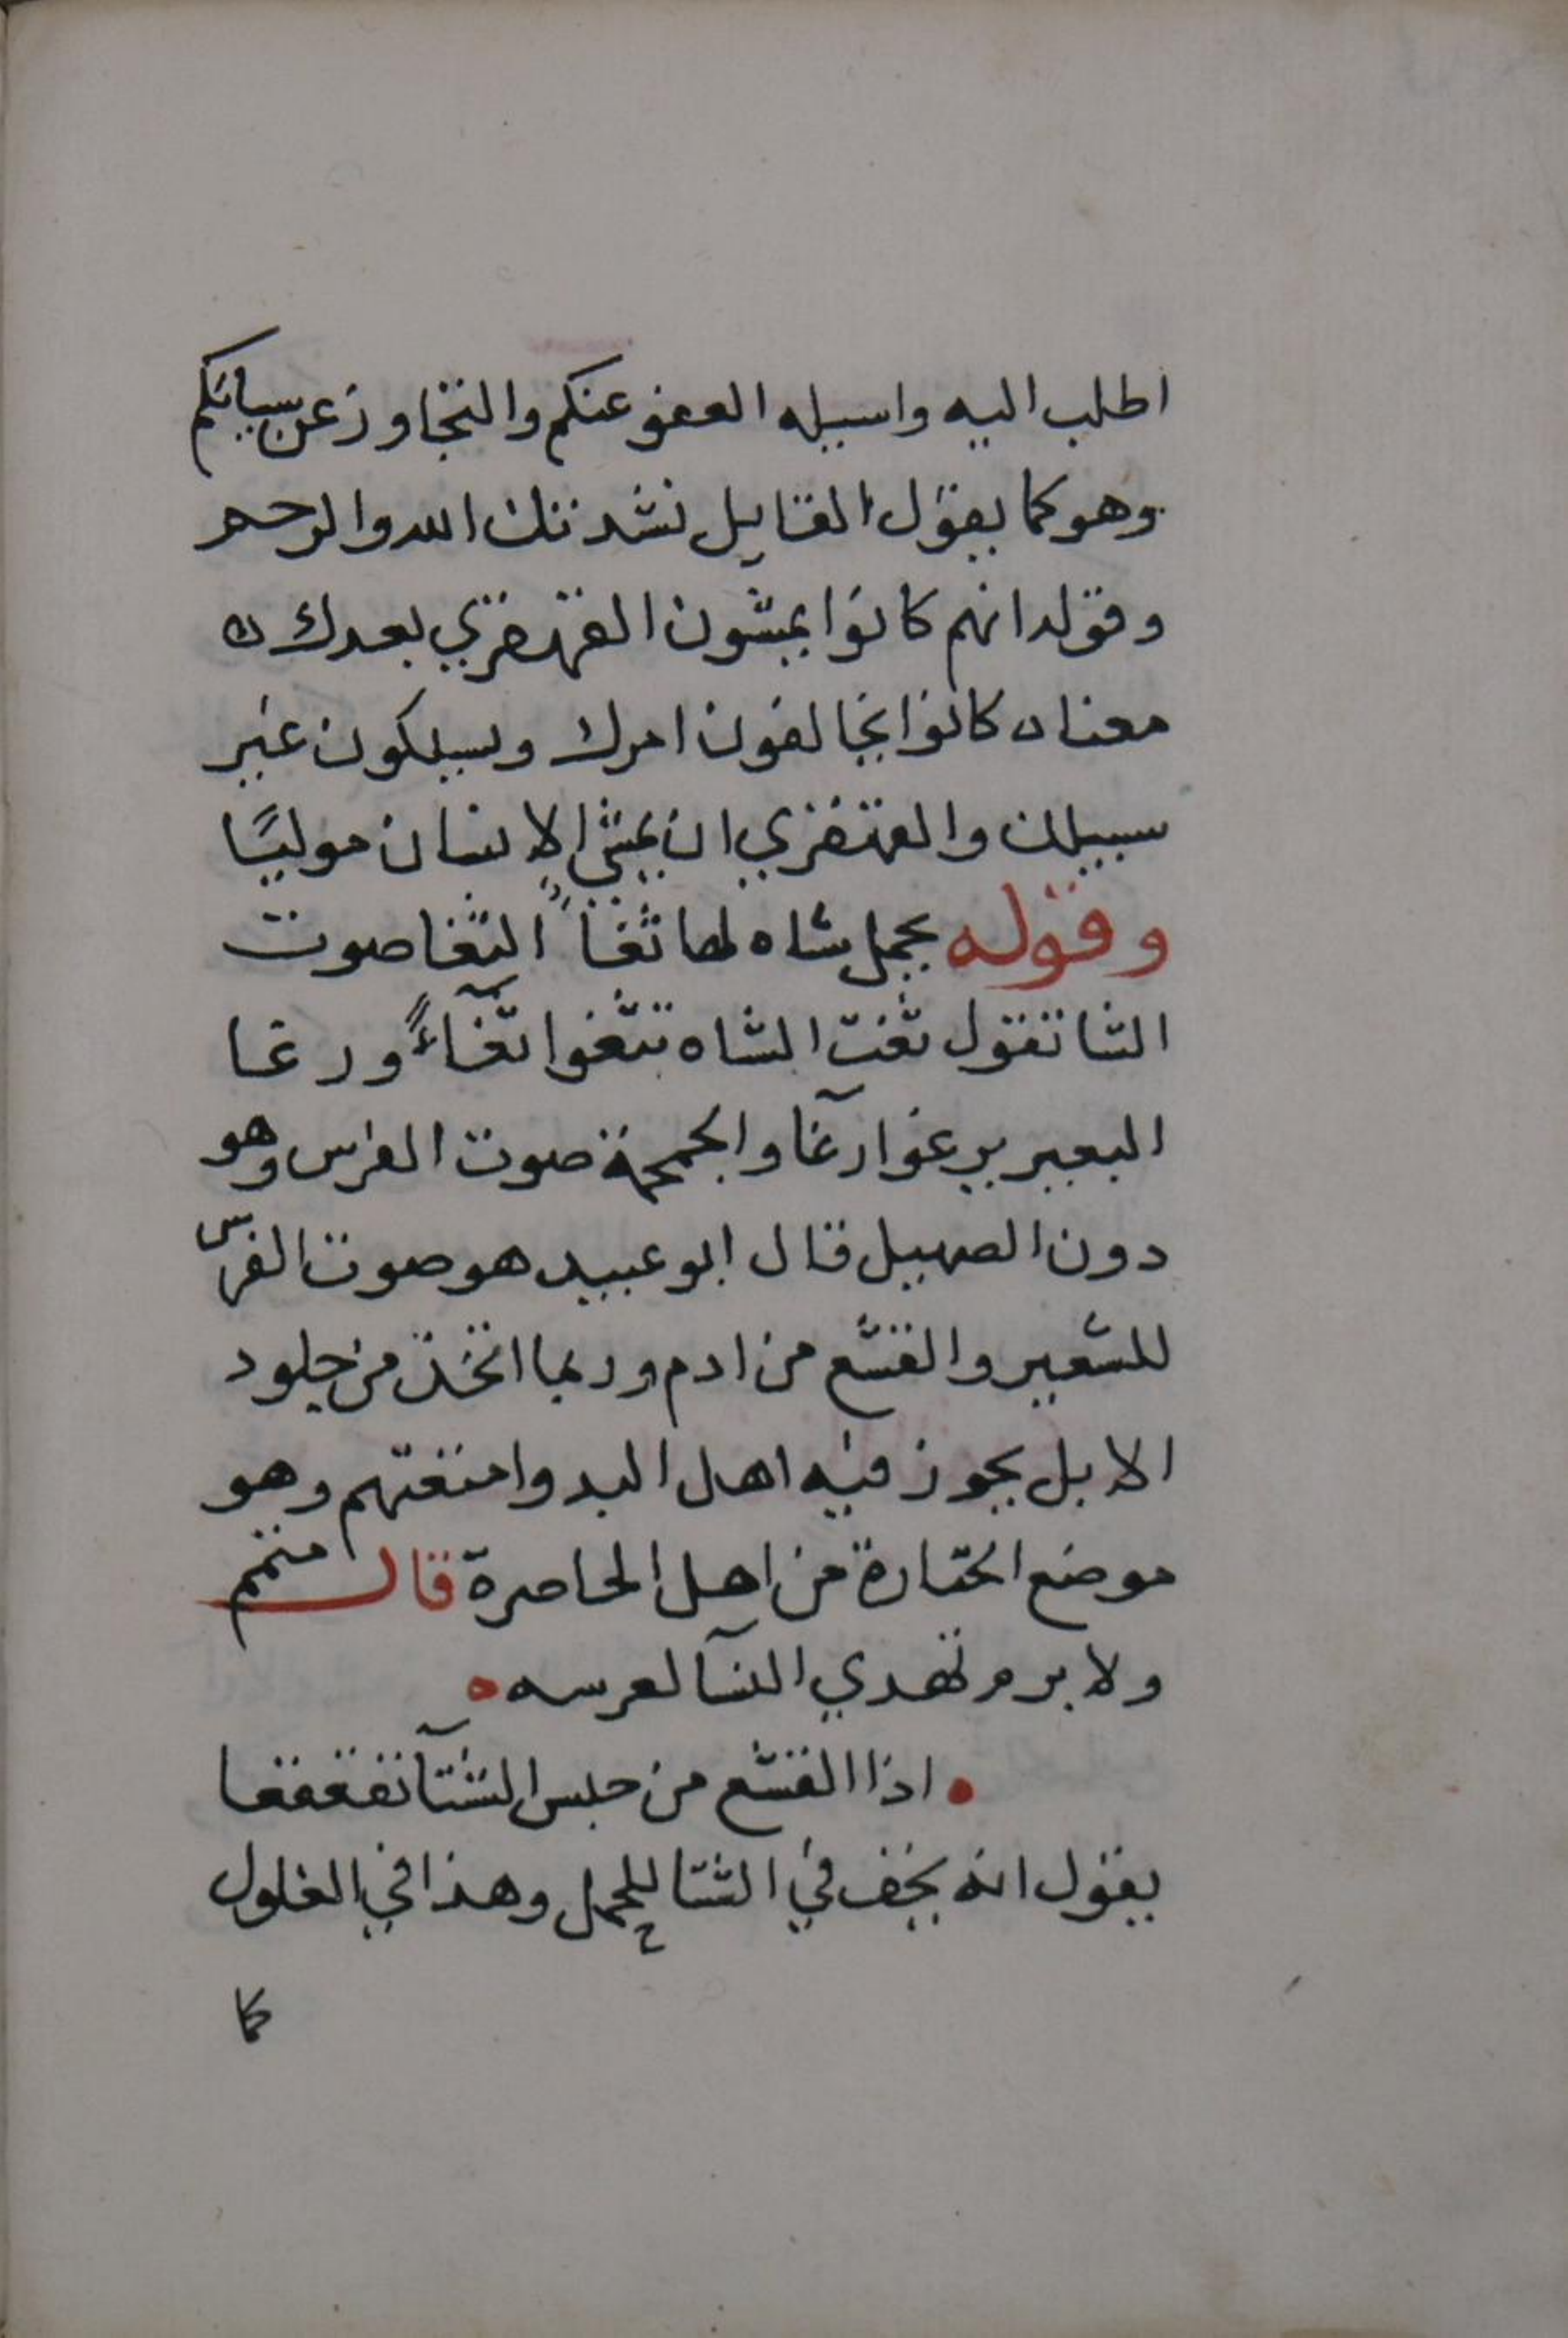 اطلب اليه واسيله العفو عنكم والتجاوز عن سيئاتكم
وهو كما يقول القايل نشدتك الله والرحم
وقوله انهم كانوا يمشون القهقري بعدك
معناه كانوا يخالفون امرك ويسلكون غير
سبيلك والقهقري ان يمشي الانسان موليًا
وقوله يحمل شاه لها ثغاً الثغا صوت
الشا تقول ثغت الشاه تثغوا ثغآءً ورغا
البعير يرغوا رغآ والحمحمة صوت الفرس وهو
دون الصهيل قال ابو عبيد هو صوت الفرس
للشعير والقشع من ادم وربما اتخذ من جلود
الابل يحوز فيه اهل البدو امتعتهم وهو
موضع الختارة من اهل الحاصرة قال متمم
ولا برم تهدي النسآ لعرسه
اذا القشع من حلس الشتآ تقعقعا
يقول انه يخف في الشتا للحمل وهذا في الغلول
كا